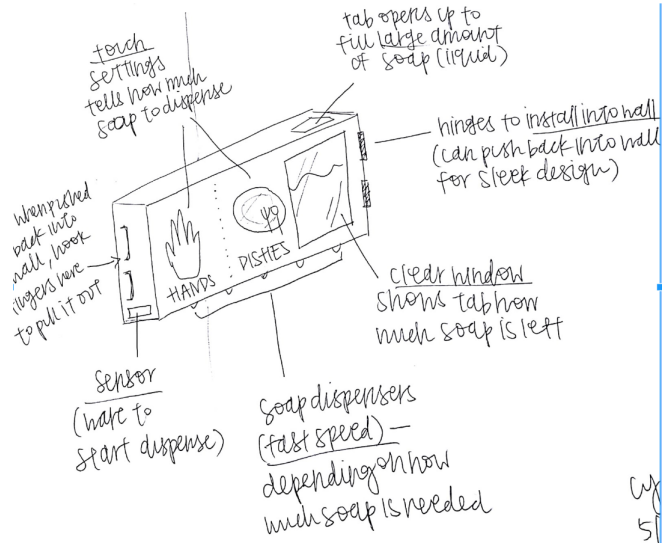 touch
settings
tells how much
soap to dispense
tab opens up to
fill large amount
of soap (liquid)
hinges to install into wall
(can push back into wall
for sleek design)
when pushed
back into
wall, hook
fingers here
to pull it out
HANDS
DISHES
clear window
shows tab how
much soap is left
sensor
(wave to
start dispense)
soap dispensers
(fast speed) —
depending on how
much soap is needed
cy
51